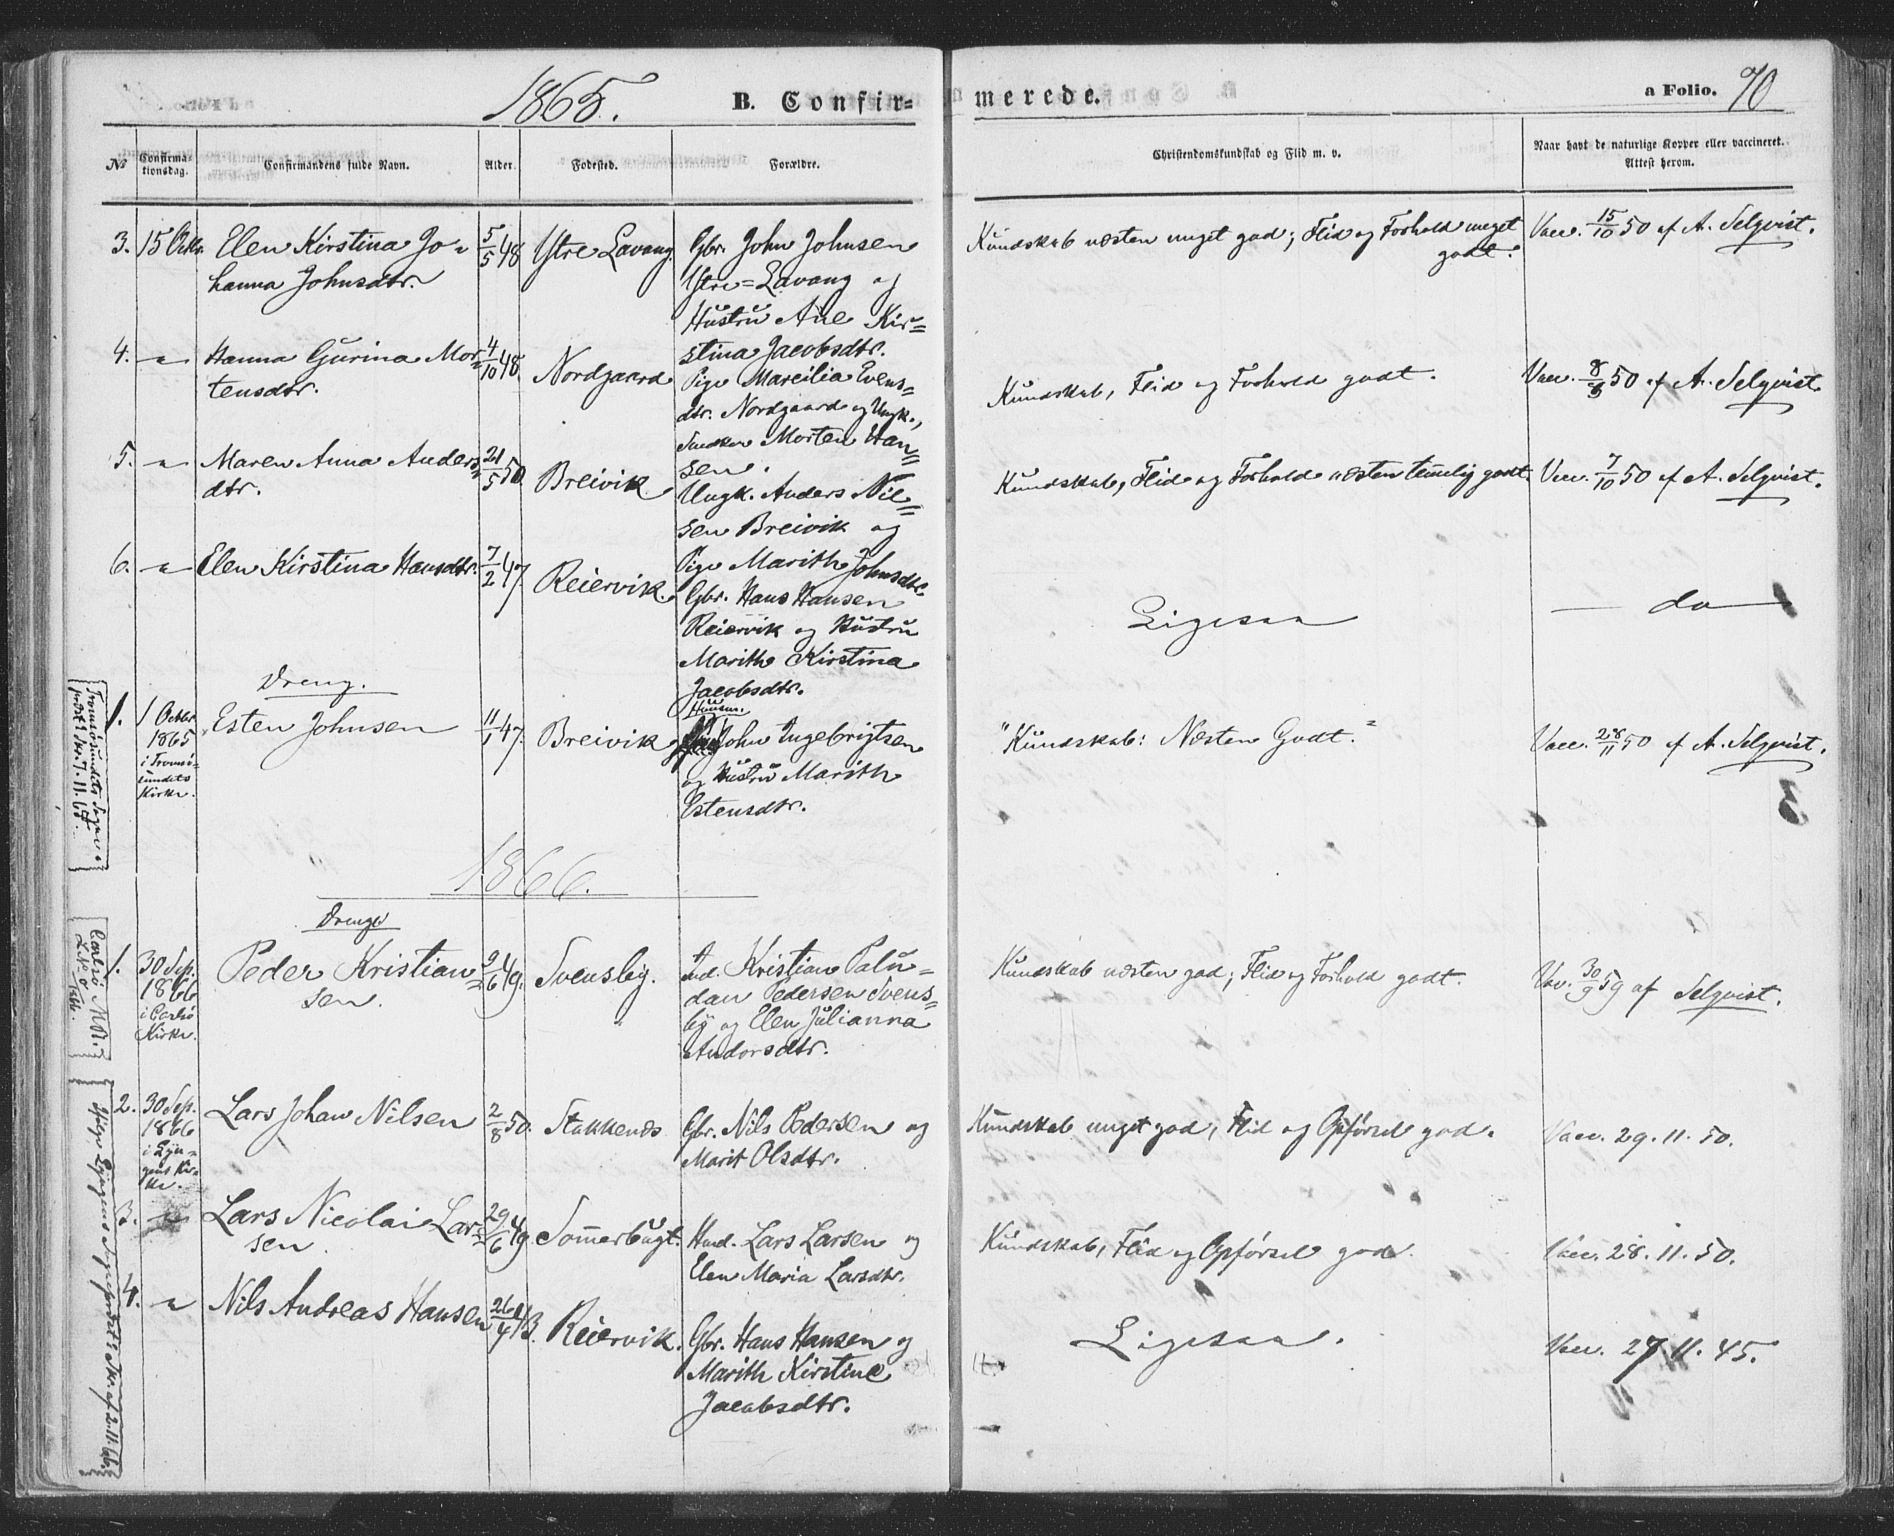 1865.
B. Confir-
merede.
a Folio. 70
No
Confirma-
tionsdag.
Confirmandens fulde Navn.
Alder.
Fodested.
Forældre.
Christendomskundskab og Flid m. v.
Naar havt de naturlige Kopper eller vaccineret.
Attest herom.
3. 15 Octbr. Elen Kirstina Jo=
hanna Johnsdtr.
5/5 48
Ytre Lavang.
Gbr. John Johnsen
Ytre=Lavang og
Hustru Ane Kir=
stina Jacobsdtr.
Kundskab næsten meget god; Flid og Forhold meget
godt.
Vacc. 15/10 50 af A. Selqvist.
4. — " — Hanna Gurina Mor=
tensdtr.
4/10 48.
Nordgaard
Pige Marcilia Evens=
dtr. Nordgaard og Ungk.,
Snedker Morten Han=
sen.
Kundskab, Flid og Forhold godt.
Vacc. 8/8 50 af A. Selqvist.
5. — " — Maren Anna Anders=
dtr.
21/5 50
Breivik.
Ungk. Anders Nil=
sen Breivik og
Pige Marith Johnsdtr.
Kundskab, Flid og Forhold næsten temelig godt.
Vacc. 7/10 50 af A. Selqvist.
6. — " — Elen Kirstina Hansdtr.
7/2 47.
Reiervik.
Gbr. Hans Hansen
Reiervik og Hustru
Marith Kirstina
Jacobsdtr.
Ligesaa
— do —
Dreng.
1. 1 Octbr.
1865
i Tromsø-
sundets
Kirke.
Esten Johnsen
11/1 47.
Breivik
Huusm.
John Ingebrigtsen
og Hustru Marith
Estensdtr.
"Kundskab: Næsten Godt."
Vacc. 28/11 50 af A. Selqvist.
Tromsøsundets Sogne-
præst Skr. 7.11.65.
1866.
Drenge
1. 30 Sep.
1866
i Carlsø
Kirke.
Peder Kristian=
sen.
2/6 49.
Svensby.
Ind. Kristian Palu=
dan Pedersen Svens=
by og Elen Julianna
Andorsdtr.
Kundskab næsten god; Flid og Forhold godt.
Vac. 30/9 59 af Selqvist.
2. 30 Sep.
1866
i Lyn=
gens Kir=
ke.
Lars Johan Nilsen
2/8 50.
Stakkenæs
Gbr. Nils Pedersen og
Marit Olsdtr.
Kundskab meget god, Flid og Opførsel god.
Vacc. 29. 11. 50.
3. — " — Lars Nicolai Lar=
sen.
29/6 49.
Somerbugt.
Hmd. Lars Larsen og
Elen Maria Larsdtr.
Kundskab, Flid og Opførsel god.
Vacc. 28. 11. 50.
4. — " — Nils Andreas Hansen
26/4 43.
Reiervik.
Gbr. Hans Hansen og
Marith Kirstine
Jacobsdtr.
Ligesaa.
Vacc. 27. 11. 45.